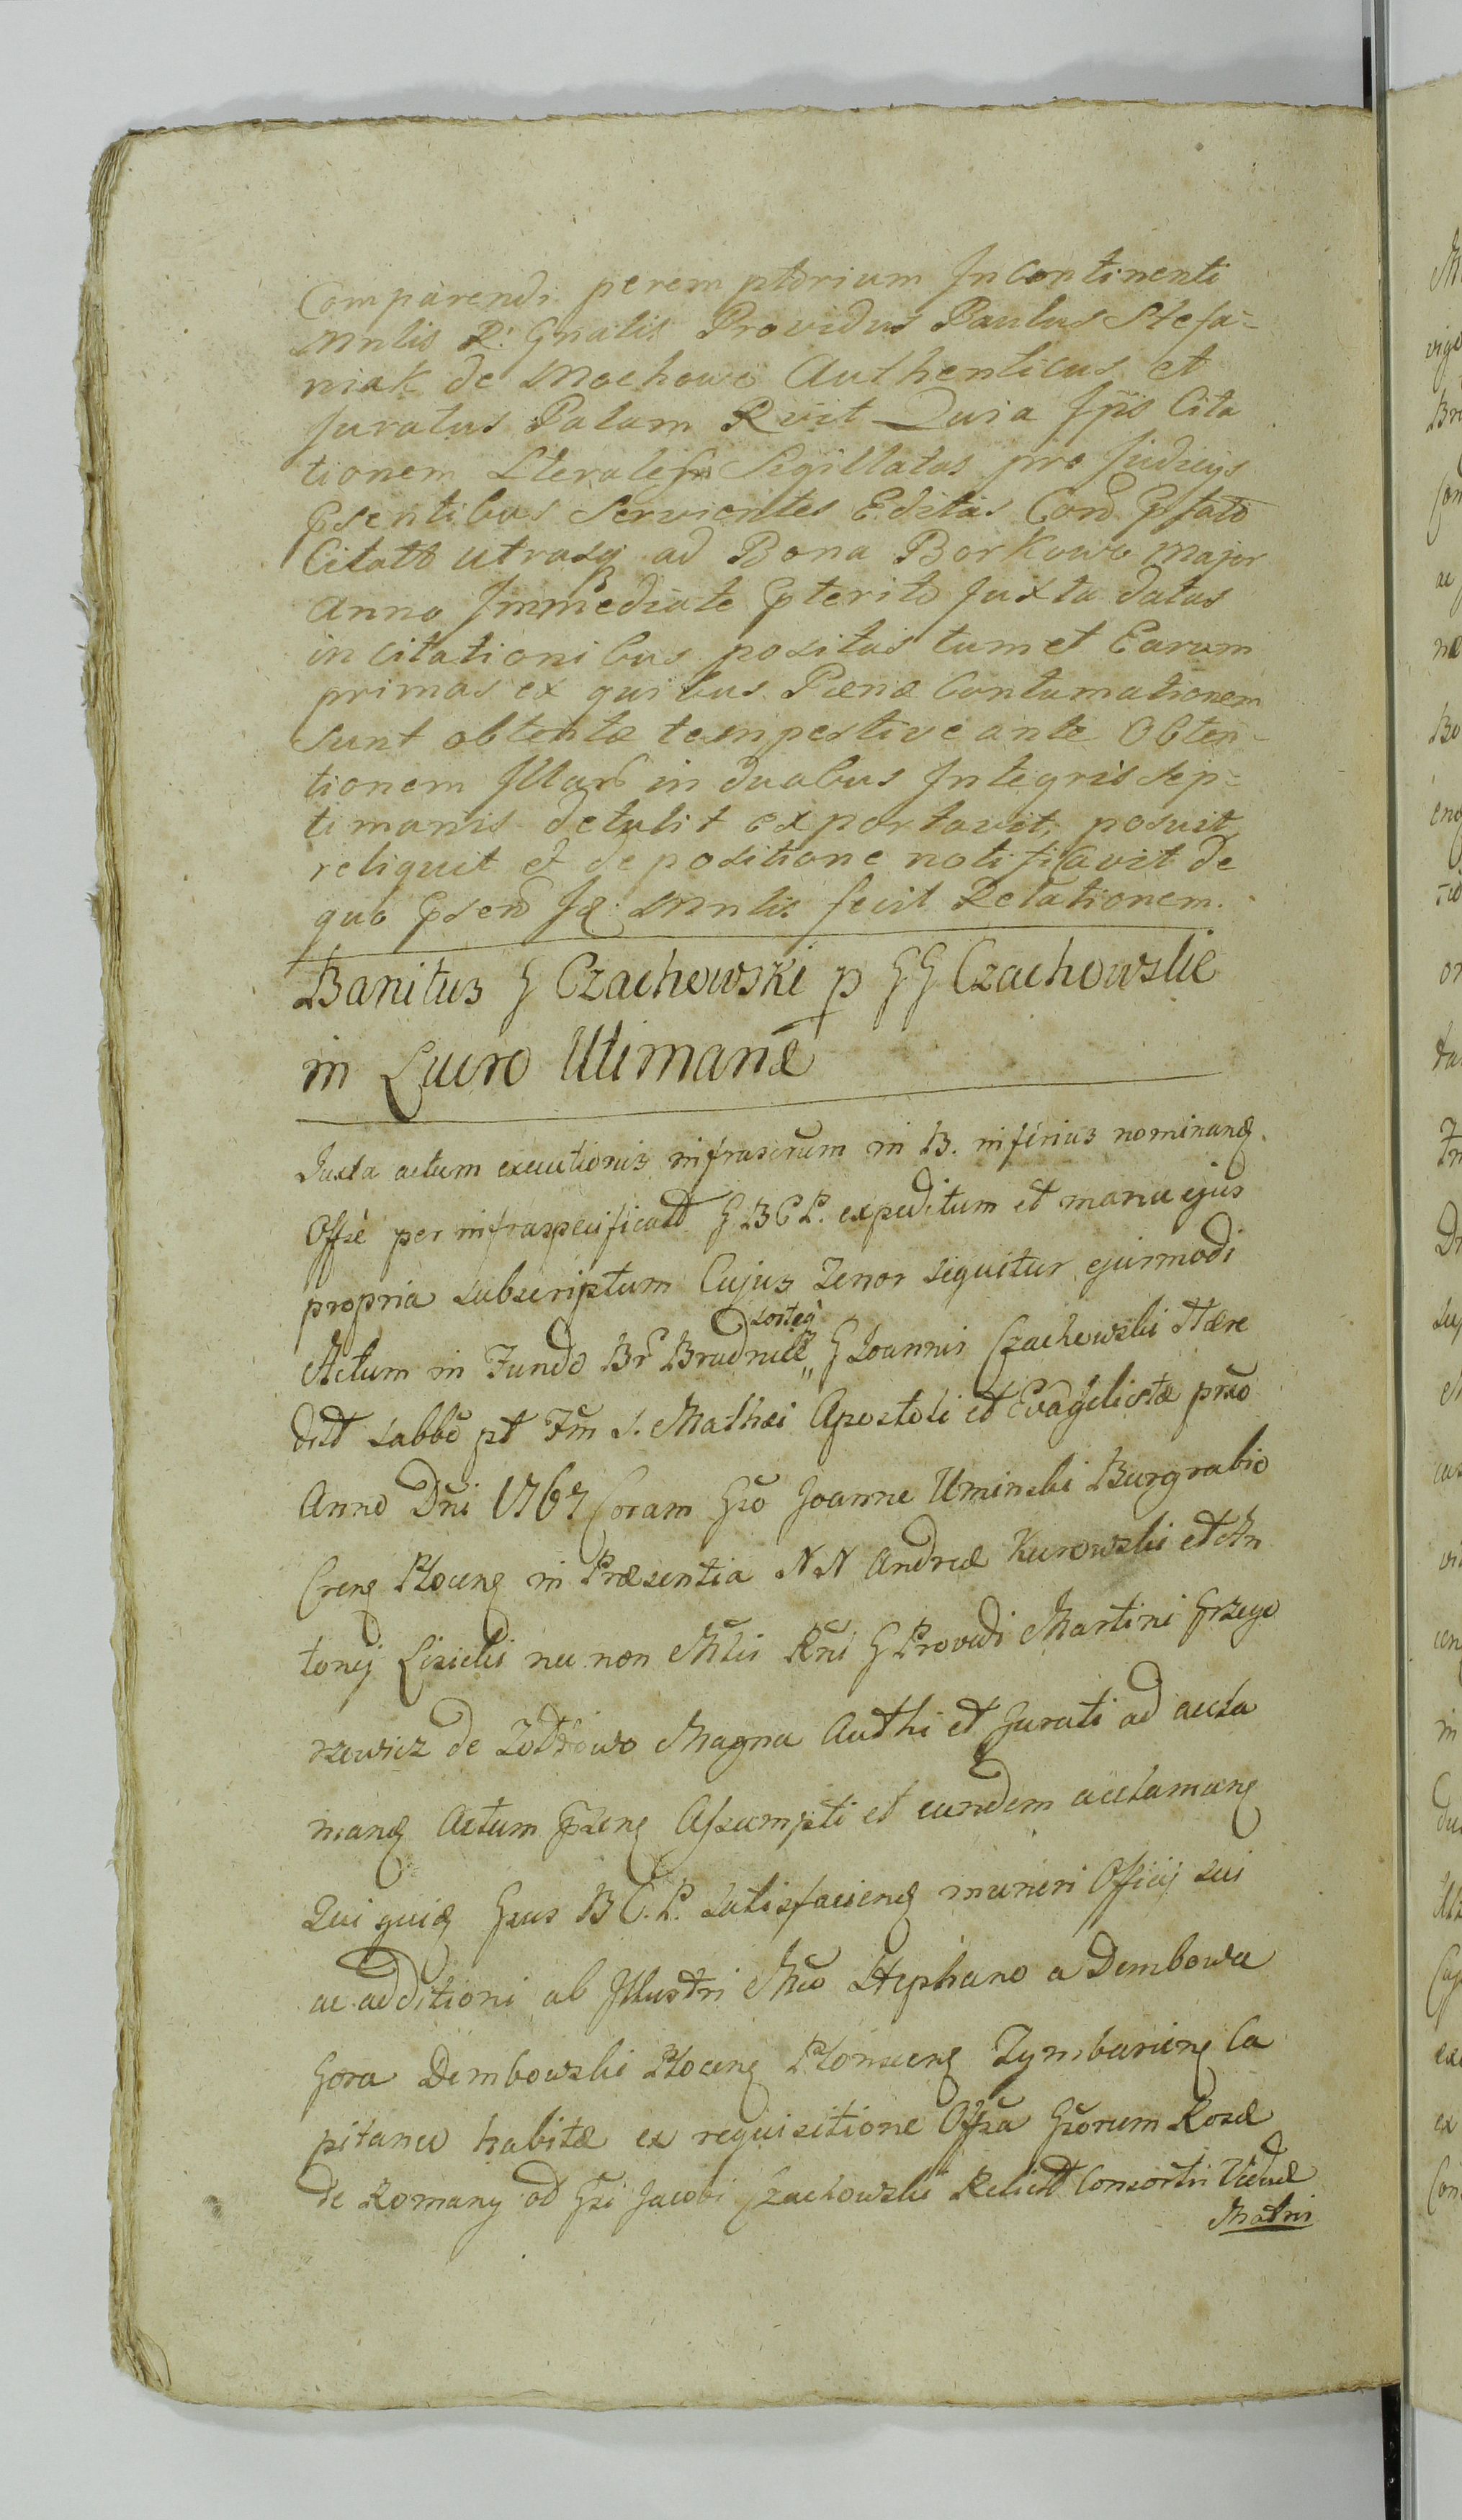 Comparendi peremptorium Incontinenti
Mnlis R: Gnalis Providus Paulus Stefa=
niak de Mochowo Authenticus et
Juratus Palam Rvit Quia Ips Cita
tionem Literales Sigillatas pro Judicys
Psentibus Servientes Editas Cord Psato
Citatt utrasq ad Bona Borkowo Major
Anno Immediate Pterito Juxta datas
in Citationibus positas tum et Earum
primas ex quibus Pænæ Contumationem
sunt obtentæ tempestive ante Obten-
tionem Illarb in duabus Integris sep=
timanis detulit exportavit, posuit
reliquit et de positione notificavit de
quo Psend Mnlis fecit Relationem.
Banitus G Czachowski p GG Czachowskie
in Lucro Ulimanæ
Juxta actum executionis infrascrum in B. inferius nominang.
Offse per infraspecificatt G BCP. expeditum et manu ejus
propria subscriptum Cujus Tenor sequitur ejusmodi
sorteq
Actum in Fundo Br Brudnice G Joannis Czachowski Hære
ditt Sabbo pt Fm S. Mathæi Apostoli et Evagelistæ prio
Anno Dni 1767 Coram Gso Joanne Uminski Burgrabio
Creng Ploceng in Præsentia NN Andreæ Kurowski et An
tonij Lisicki nec non Mlis Rni G Providi Martini Grzego
rzewicz de Magna Authi et Jurati ad accla
mang Actum Pseng Assumpti et eundem acclamang
Qui quid Gsus B C. P. satisfacieng muneri Officij sui
ac additioni ab Illustri Mco Stephano a Dembowa
Gora Dembowski Ploceng Plonsceng Zymburieng Ca
pitaneo habitæ ex requisitione Offsa Gsorum Rosæ
de Romany od Gsi Jacobi Czachowski Relictt Consortis Viduæ
Matris